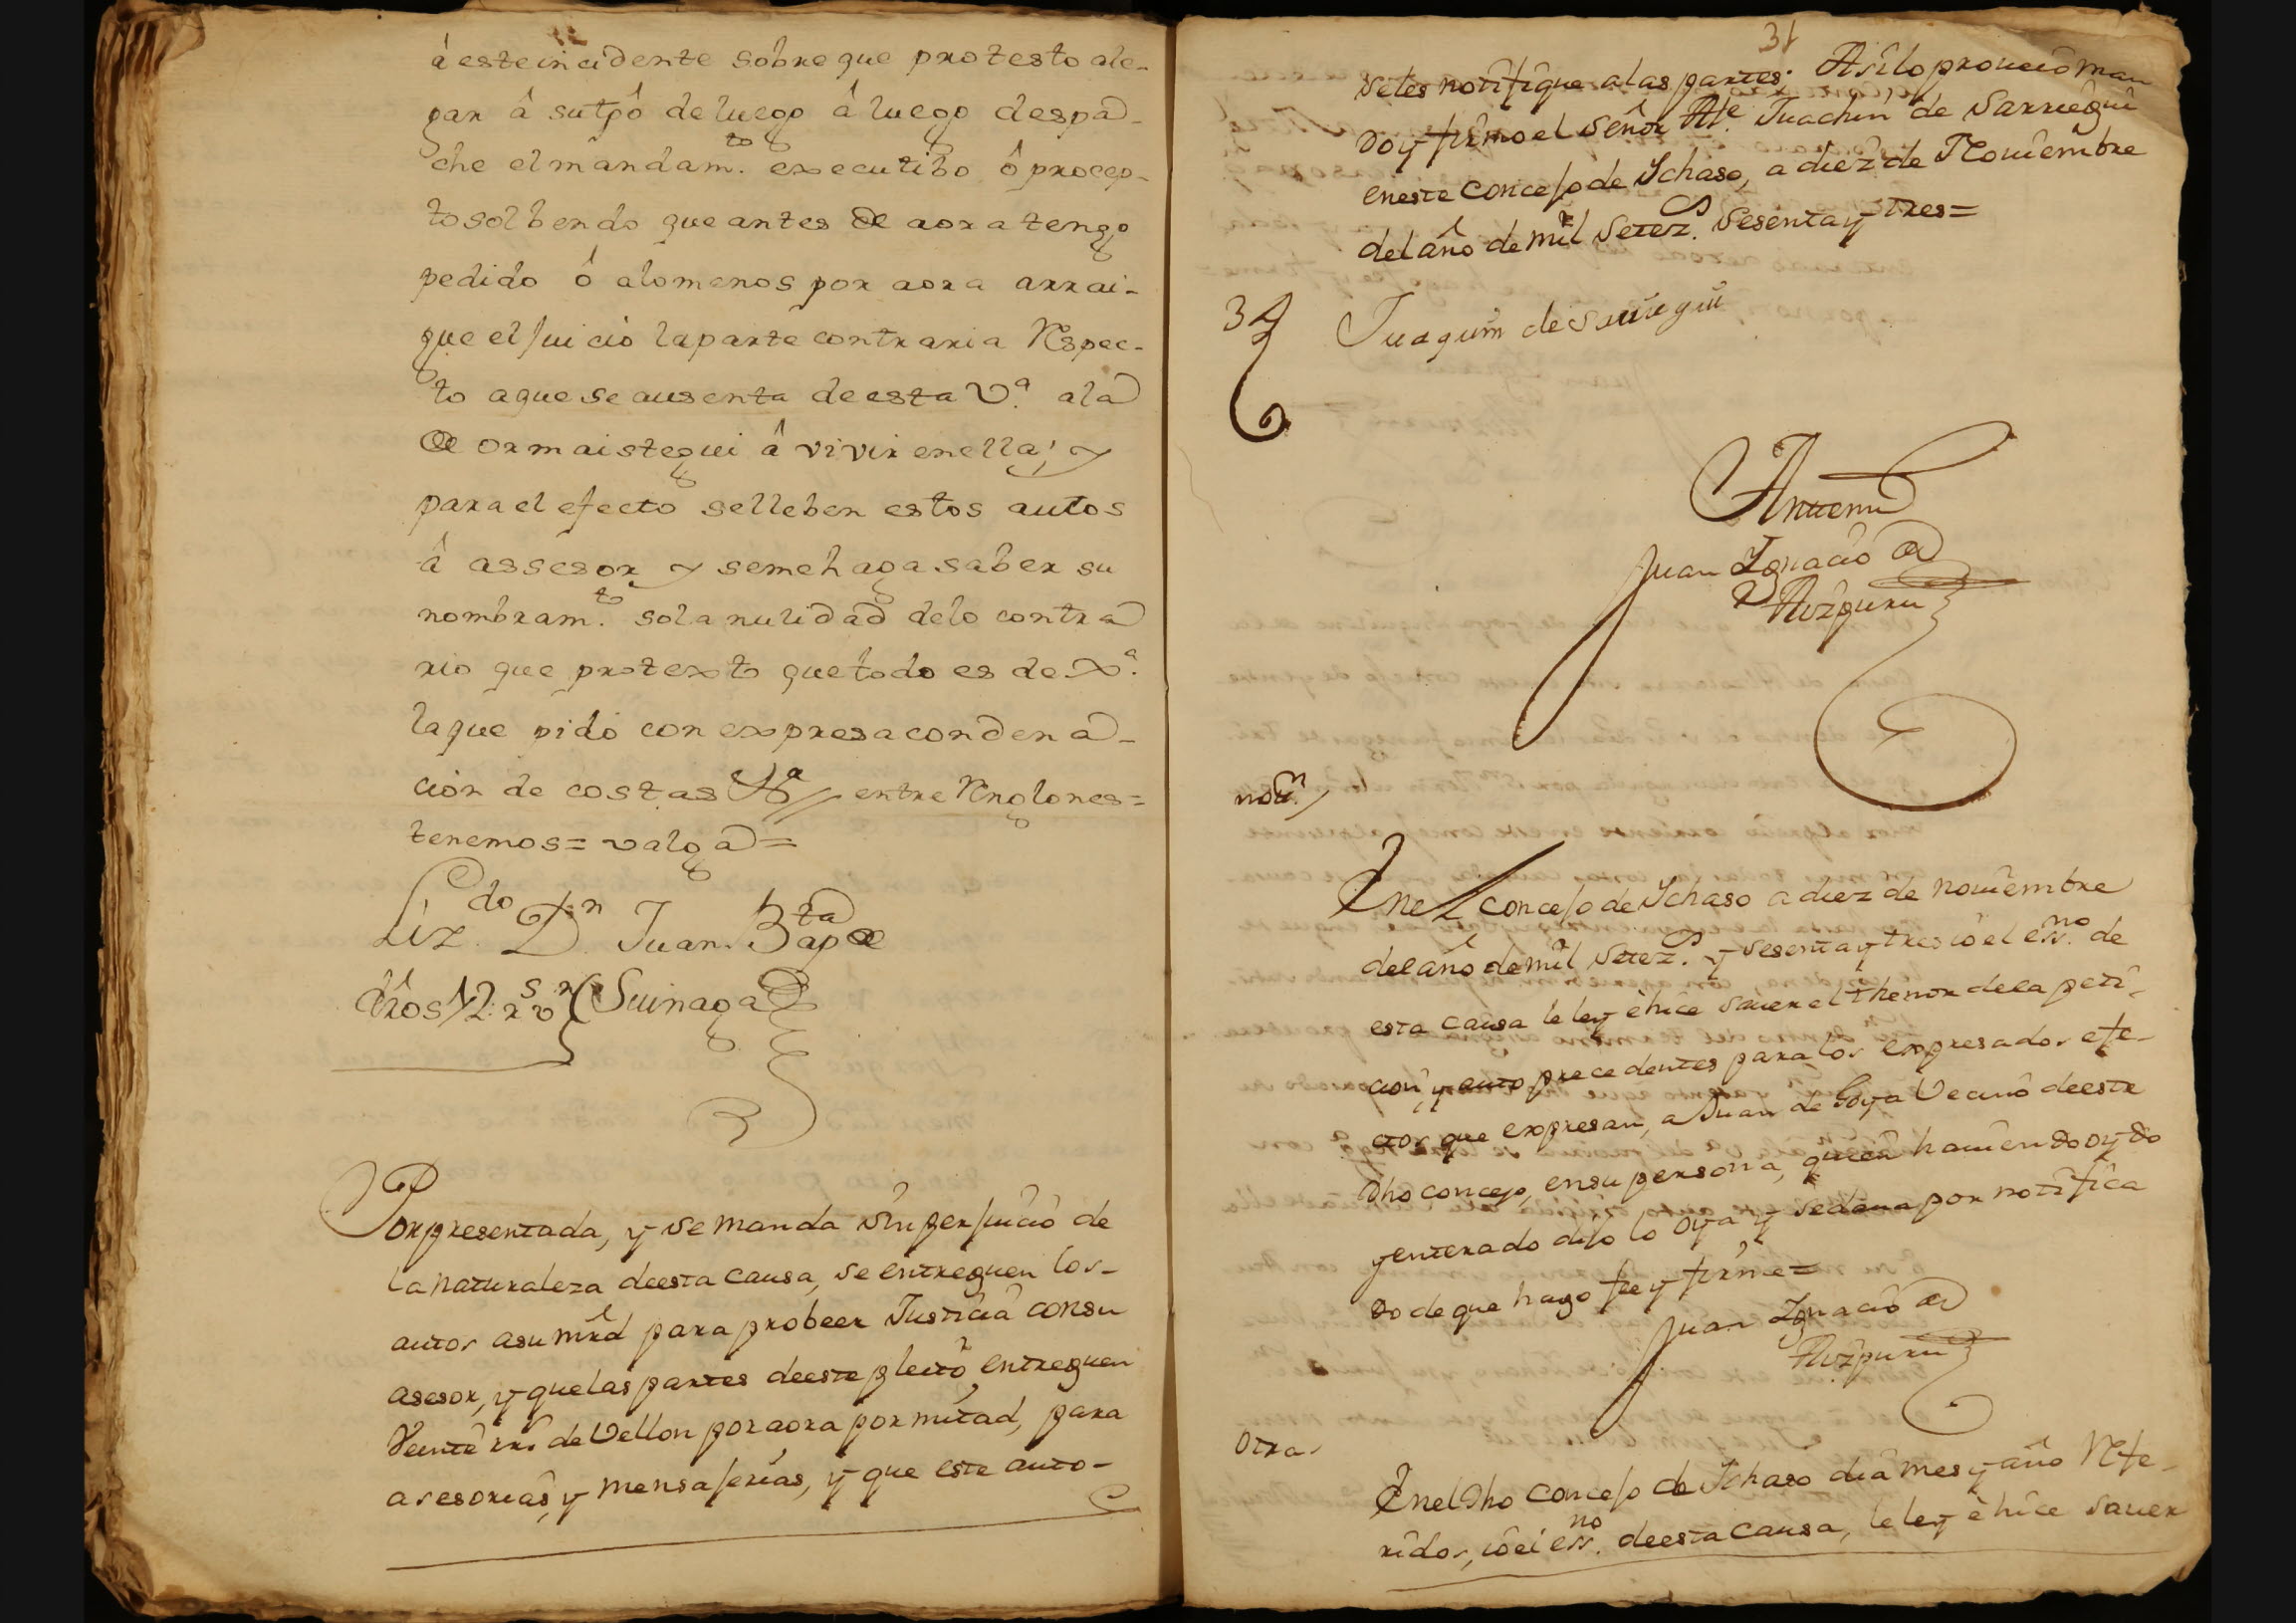 á este incidente sobre que protesto ale-
gar â sutpô de luego â luego despa-
che el mandam.to executibo ô procep-
to solbendo que antes de aora tengo
pedido ô alomenos por aora arrai-
gue el juicio la parte contraria Respec-
to a que se ausenta de esta V.a a la
de ormaistegui â vivir en ella, y
para el efecto se lleben estos autos
â assesor y se me haga saber su
nombram.to so la nulidad de lo contra
rio que protexto que todo es de Xa.
la que pido con expresa condena-
cion de costas Aa entre Renglones=
tenemos= valga=
Liz.do Dn Juan Bapta de
dros 12 rs vn Suinaga
Por presentada, y se manda sin perjuicio de
la naturaleza de esta causa, se entreguen los
autos a su mrd para probeer Justicia con su
asesor, y que las partes de este pleito entreguen
Veinte rrs de Vellon por aora por mitad, para
asesorias, y mensajerias, y que este auto
31
se les notifique a las partes: Asi lo proueio man
do y firmo el señor Ale. Juachin de Sarriegui
en este concejo de Ychaso, a diez de Nouiembre
del año de mil setezs. sesenta y tres=
34
Juaquin de Sarriegui
Antemi
Juan Ignacio de
Aizpuru
noton
En el concejo de Ychaso a diez de nouiembre
del año de mil setezs. y sesenta y tres io el essno. de
esta causa le ley è hice sauer el thenor de la peti-
cion, y auto precedentes para los expresados efe-
ctos que expresan, a Juan de Goya Vecino de este
dho concejo, en su persona, quien hauiendo oydo
y enterado dijo lo oya y se daua por notifica
do de que hago fee y firme=
Juan Ignacio de
Aizpuru
Otra
En el dho concejo de Ychaso dia mes y año Refe-
ridos, io el essno. de esta causa, le ley è hice sauer